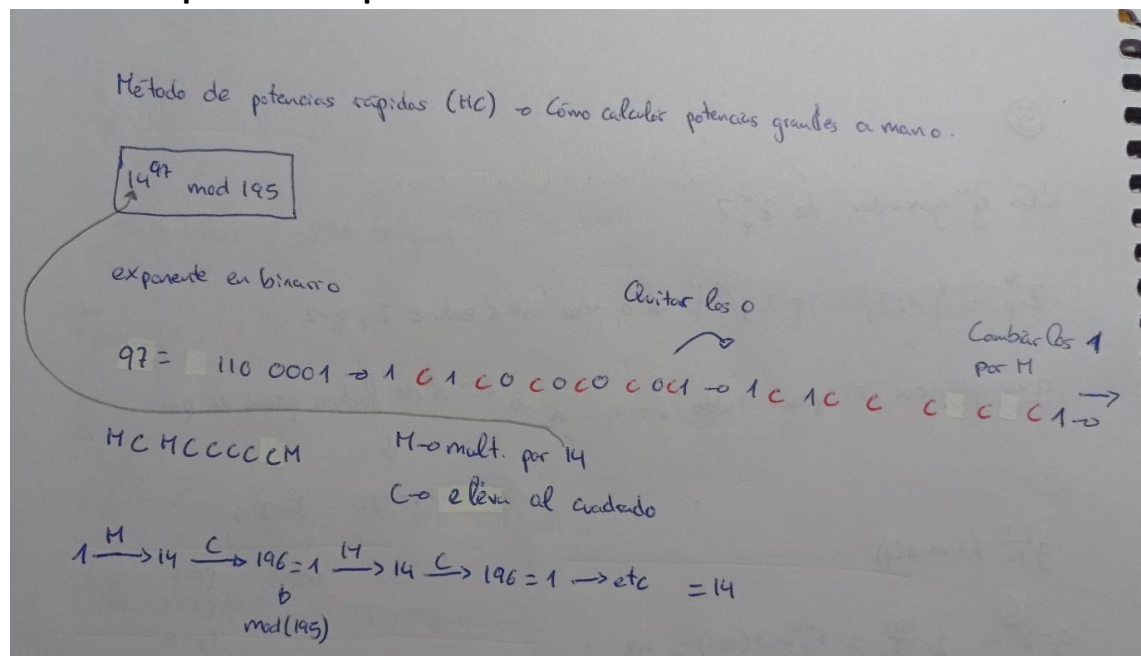 Método de potencias rápidas (MC) → Cómo calcular potencias grandes a mano.
14^97 mod 195
exponente en binario
Quitar los 0
Cambiar los 1
por M
97 = 110 0001 → 1 C 1 C 0 C 0 C 0 C 0 C 1 → 1 C 1 C C C C C 1 →
M C M C C C C C M
M → mult. por 14
C → eleva al cuadrado
1 M→ 14 C→ 196 = 1 M→ 14 C→ 196 = 1 → etc = 14
mod(195)